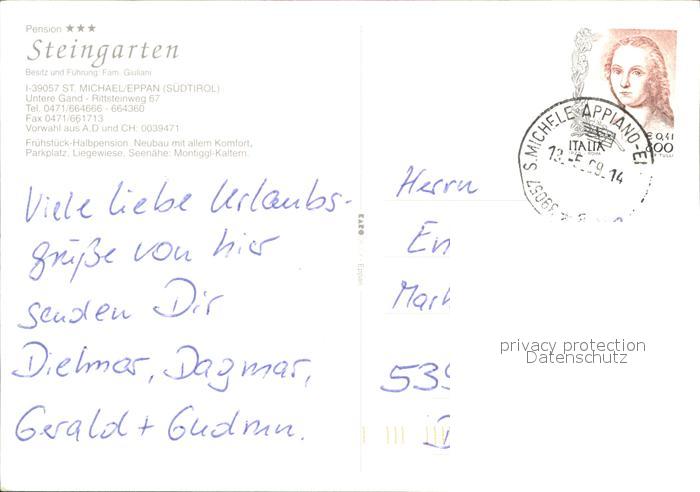 Pension ★★★
Steingarten
Besitz und Führung: Fam. Giuliani
I-39057 ST. MICHAEL/EPPAN (SÜDTIROL)
Untere Gand - Rittsteinweg 67
Tel. 0471/664666 - 664360
Fax 0471/661713
Vorwahl aus A.D und CH: 0039471
Frühstück-Halbpension. Neubau mit allem Komfort,
Parkplatz, Liegewiese, Seenähe: Montiggl-Kaltern.
Viele liebe Urlaubs-
grüße von hier
senden Dir
Dietmar, Dagmar,
Gerald + Gudrun.
Eppan
€ 0,41
800
ITALIA
39057 S. MICHELE APPIANO-E
13.-5.99.14
Herrn
En
Mark
539
D
privacy protection
Datenschutz